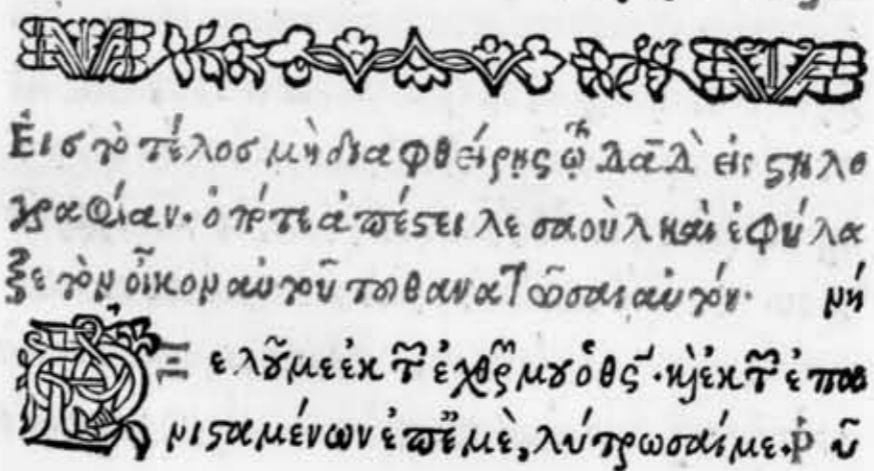 Εἰς τὸ τέλοσ μὴ διαφθείρης τῷ Δαδ εἰς ϛηλο
γραφίαν· ὁπότε ἀπέϛειλε σαοὺλ καὶ ἐφύλα
ξε τὸν οἶκον αὐτοῦ τοῦ θανατῶσαι αὐτόν· νή
Ἐξελοῦ με ἐκ τῶν ἐχθρῶν μου ὁ θς· καὶ ἐκ τῶν ἐπα
νιϛαμένων ἐπ' ἐμὲ, λύτρωσαί με. ῥῦ